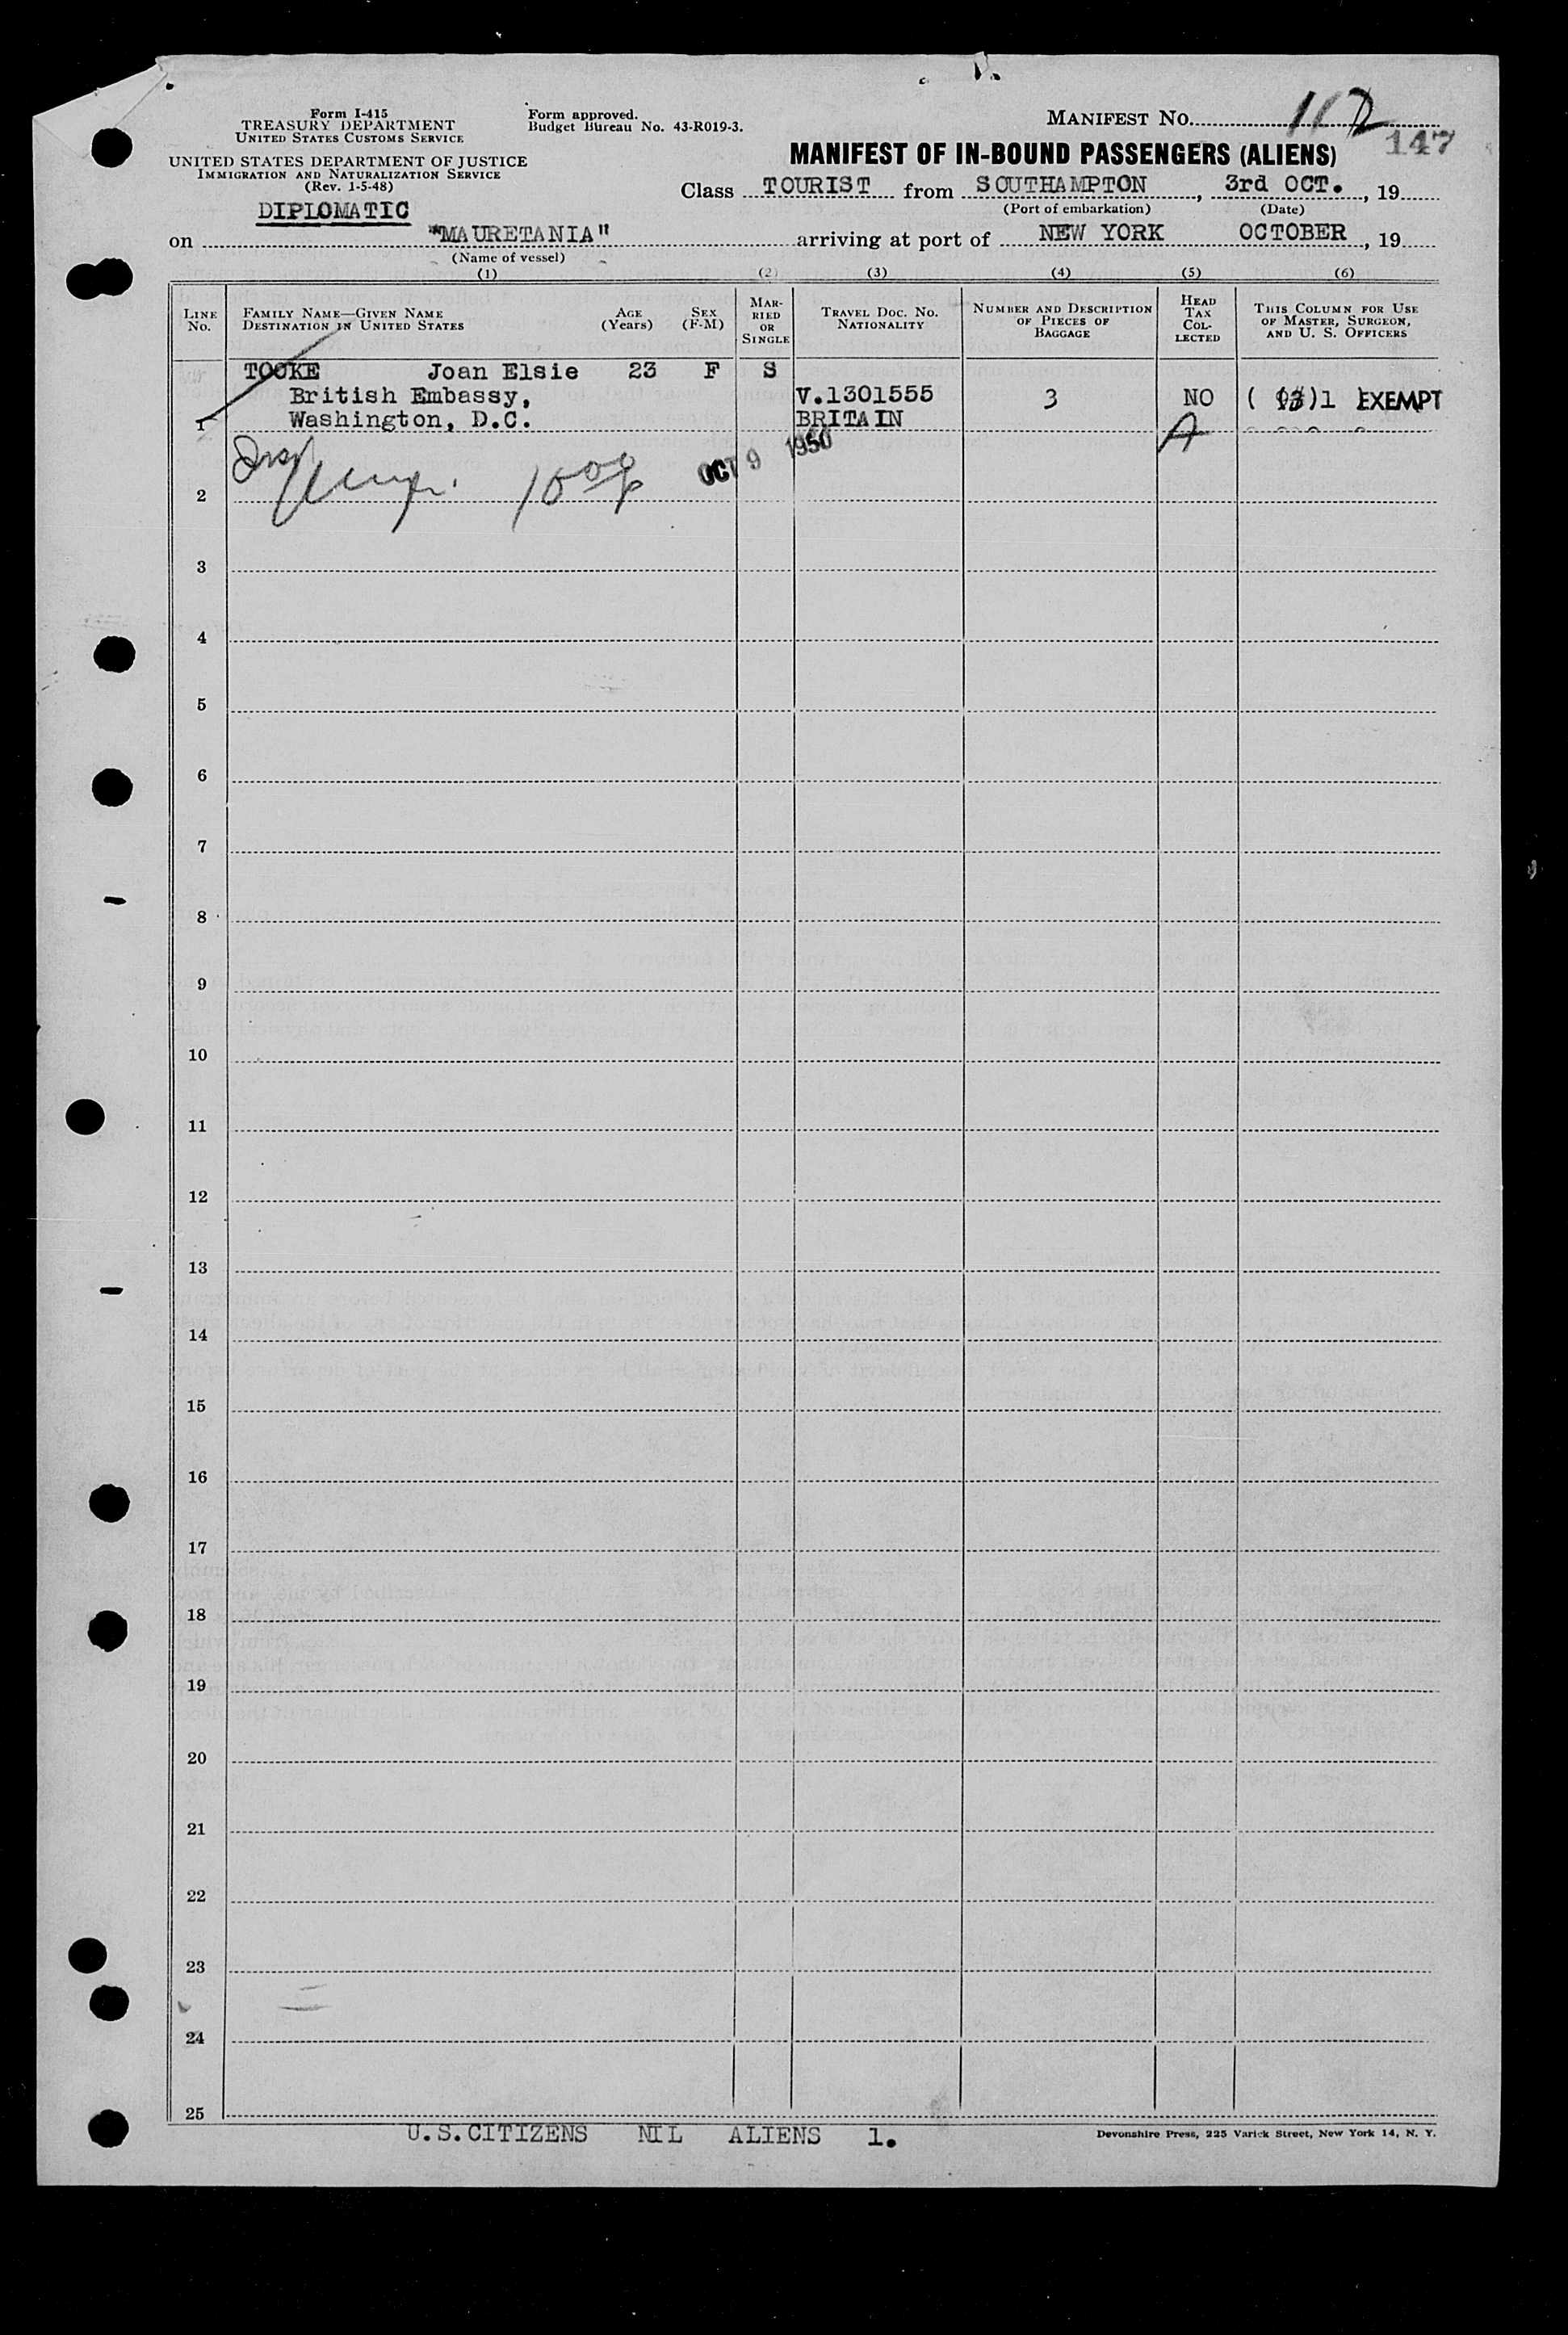 Form I-415
TREASURY DEPARTMENT
UNITED STATES CUSTOMS SERVICE
UNITED STATES DEPARTMENT OF JUSTICE
IMMIGRATION AND NATURALIZATION SERVICE
(Rev. 1-5-48)
Form approved.
Budget Bureau No. 43-R019-3.
MANIFEST No. 112
147
MANIFEST OF IN-BOUND PASSENGERS (ALIENS)
Class TOURIST from SOUTHAMPTON, 3rd OCT., 19
(Port of embarkation) (Date)
DIPLOMATIC
on "MAURETANIA" arriving at port of NEW YORK OCTOBER, 19
(Name of vessel)
(1) (2) (3) (4) (5) (6)
LINE No.
FAMILY NAME—GIVEN NAME
DESTINATION IN UNITED STATES
AGE (Years)
SEX (F-M)
MARRIED OR SINGLE
TRAVEL DOC. NO. NATIONALITY
NUMBER AND DESCRIPTION OF PIECES OF BAGGAGE
HEAD TAX COLLECTED
THIS COLUMN FOR USE OF MASTER, SURGEON, AND U. S. OFFICERS
TOOKE Joan Elsie 23 F S
British Embassy, V.1301555 3 NO ( )1 EXEMPT
1 Washington, D.C. BRITAIN A
OCT 9 1950
2
3
4
5
6
7
8
9
10
11
12
13
14
15
16
17
18
19
20
21
22
23
24
25
U.S.CITIZENS NIL ALIENS 1.
Devonshire Press, 225 Varick Street, New York 14, N. Y.